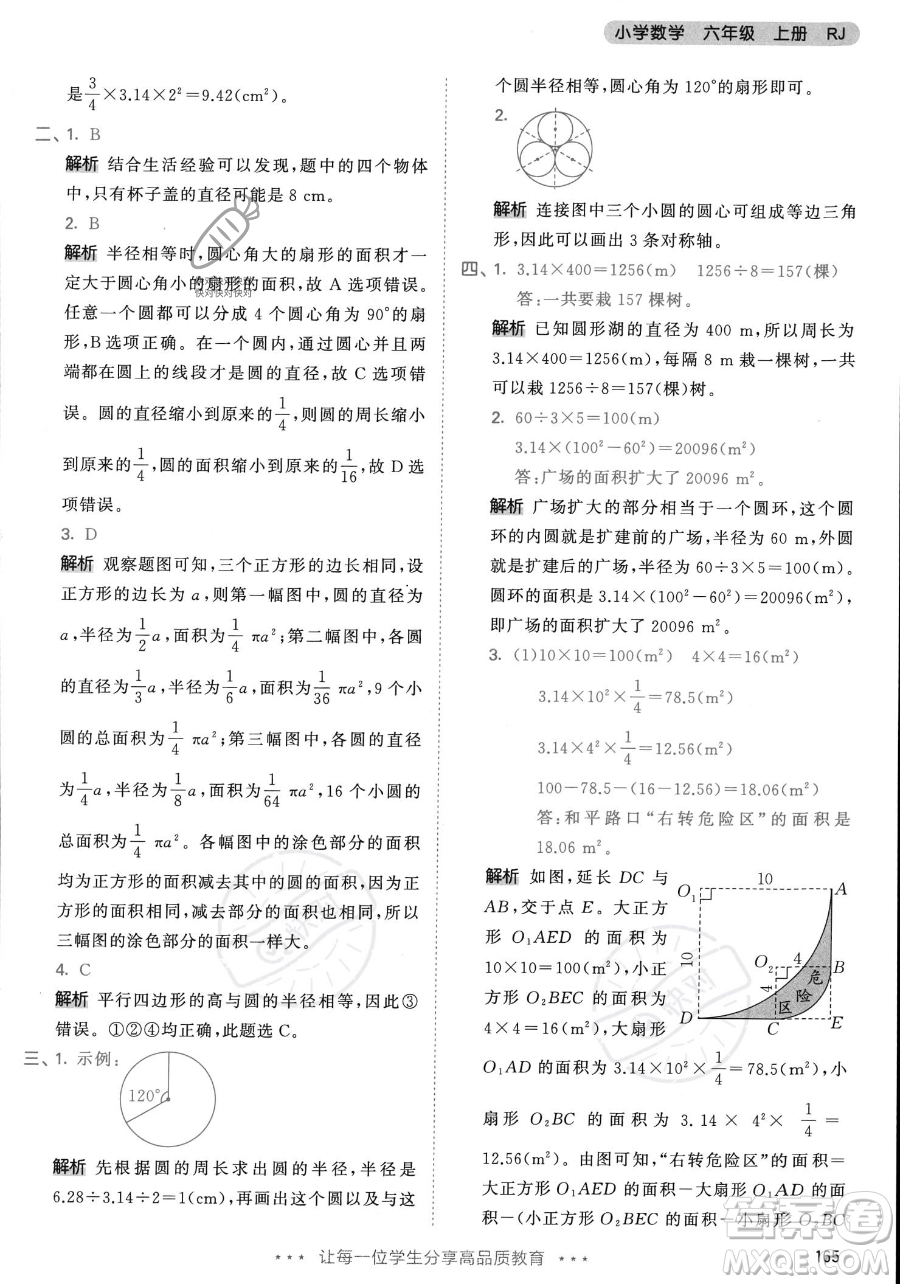 小学数学 六年级 上册 RJ
是3/4×3.14×2²=9.42(cm²)。
二、1. B
解析 结合生活经验可以发现,题中的四个物体
中,只有杯子盖的直径可能是 8 cm。
2. B
解析 半径相等时,圆心角大的扇形的面积才一
定大于圆心角小的扇形的面积,故 A 选项错误。
快对快对快对
任意一个圆都可以分成 4 个圆心角为 90°的扇
形,B 选项正确。在一个圆内,通过圆心并且两
端都在圆上的线段才是圆的直径,故 C 选项错
误。圆的直径缩小到原来的1/4,则圆的周长缩小
到原来的1/4,圆的面积缩小到原来的1/16,故 D 选
项错误。
3. D
解析 观察题图可知,三个正方形的边长相同,设
正方形的边长为 a,则第一幅图中,圆的直径为
a,半径为1/2a,面积为1/4πa²;第二幅图中,各圆
的直径为1/3a,半径为1/6a,面积为1/36πa²,9 个小
圆的总面积为1/4πa²;第三幅图中,各圆的直径为
1/4a,半径为1/8a,面积为1/64πa²,16 个小圆的
总面积为1/4πa²。各幅图中的涂色部分的面积
均为正方形的面积减去其中的圆的面积,因为
正方形的面积相同,减去的面积也相同,所以
三幅图的涂色部分的面积一样大。
4. C
解析 平行四边形的高与圆的半径相等,因此③
错误。①②④均正确,此题选 C。
三、1. 示例:
120°
解析 先根据圆的周长求出圆的半径,半径是
6.28÷3.14÷2=1(cm),再画出这个圆以及与这
个圆半径相等、圆心角为 120°的扇形即可。
2.
解析 连接图中三个小圆的圆心可组成等边三角
形,因此可以画出 3 条对称轴。
四、1. 3.14×400=1256(m) 1256÷8=157(棵)
答:一共要栽 157 棵树。
解析 已知圆形湖的直径为 400 m,所以周长为
3.14×400=1256(m),每隔 8 m 栽一棵树,一共
可以栽 1256÷8=157(棵)树。
2. 60÷3×5=100(m)
3.14×(100²-60²)=20096(m²)
答:广场的面积扩大了 20096 m²。
解析 广场扩大的部分相当于一个圆环,这个圆
环的内圆就是扩建前的广场,半径为 60 m,外圆
就是扩建后的广场,半径为 60÷3×5=100(m)。
圆环的面积是 3.14×(100²-60²)=20096(m²),
即广场的面积扩大了 20096 m²。
3. (1)10×10=100(m²) 4×4=16(m²)
3.14×10²×1/4=78.5(m²)
3.14×4²×1/4=12.56(m²)
100-78.5-(16-12.56)=18.06(m²)
答:和平路口“右转危险区”的面积是
18.06 m²。
解析 如图,延长 DC 与
AB,交于点 E。大正方
形 O₁AED 的面积为
10×10=100(m²),小正
方形 O₂BEC 的面积为
4×4=16(m²),大扇形
O₁ 10 A
10
O₂ 4 B
4
危
险
区
D C E
O₁AD 的面积为 3.14×10²×1/4=78.5(m²),小
扇形 O₂BC 的面积为 3.14×4²×1/4=
12.56(m²)。由图可知,“右转危险区”的面积=
大正方形 O₁AED 的面积-大扇形 O₁AD 的面
积-(小正方形 O₂BEC 的面积-小扇形 O₂BC
★★★ 让每一位学生分享高品质教育 ★★★
165
作业精灵
MXQE.COM